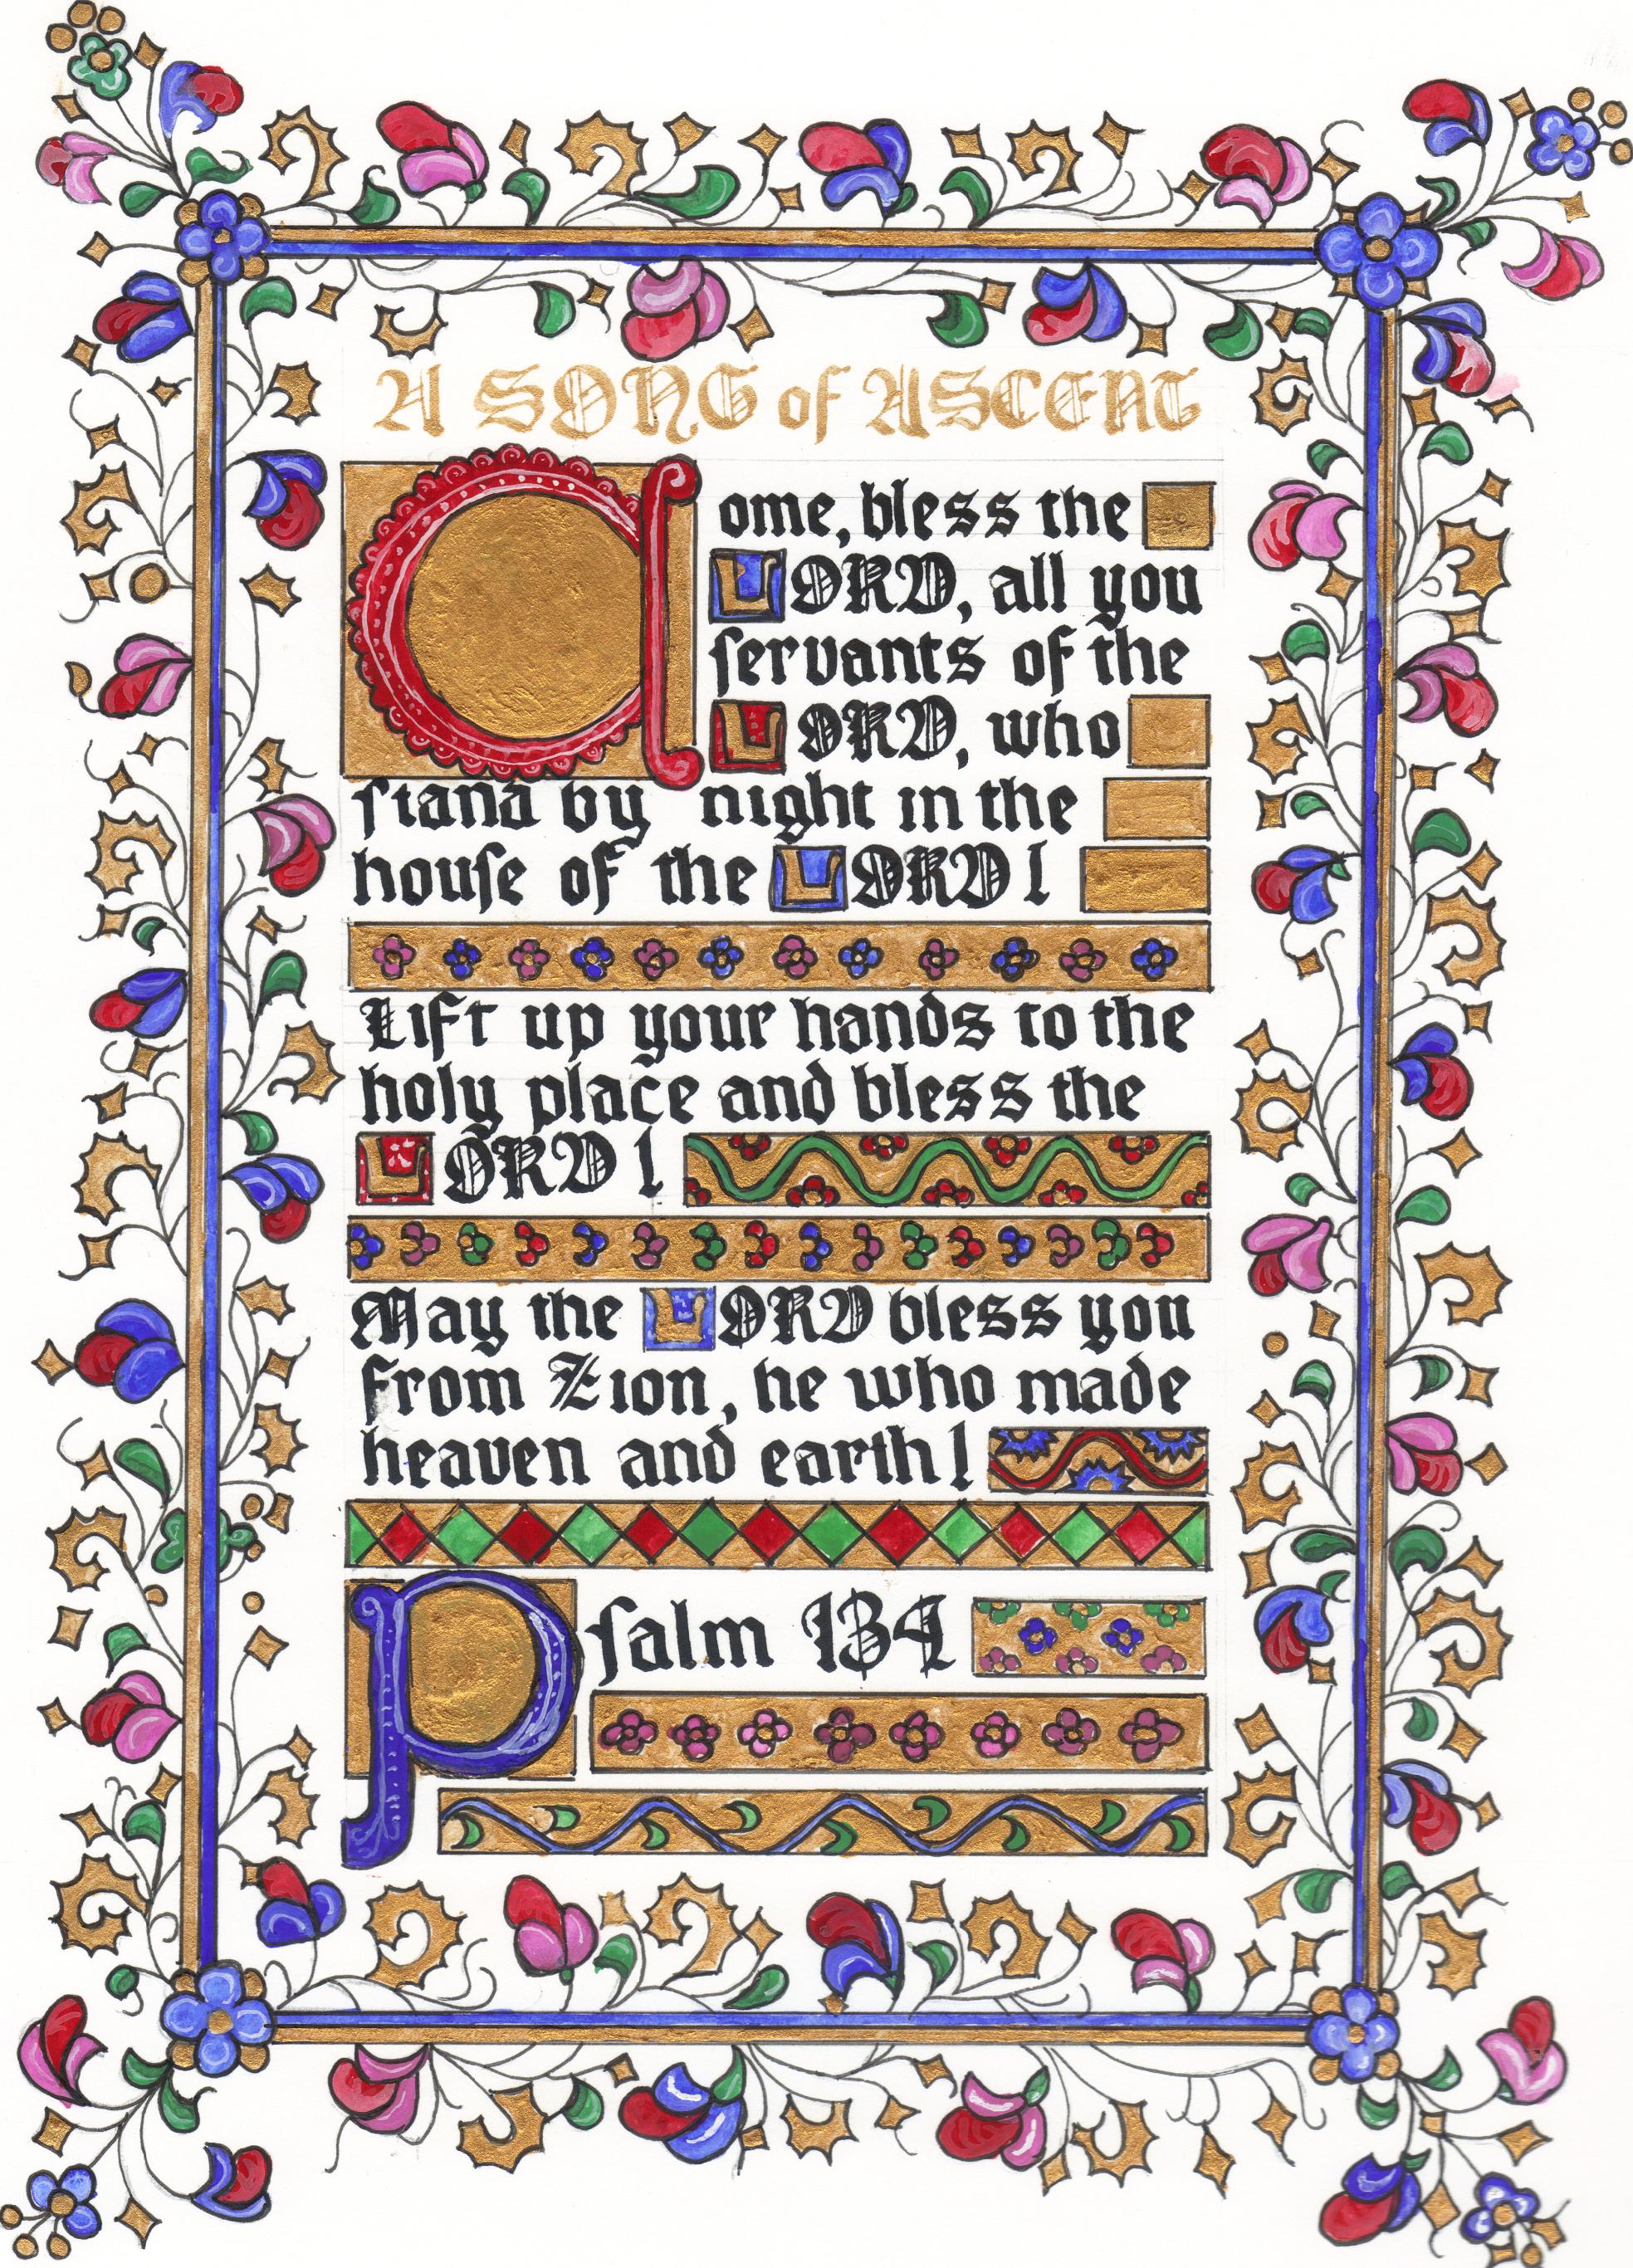 A SONG of ASCENT
Come, bless the
LORD, all you
servants of the
LORD, who
stand by night in the
house of the LORD!
Lift up your hands to the
holy place and bless the
LORD!
May the LORD bless you
from Zion, he who made
heaven and earth!
Psalm 134